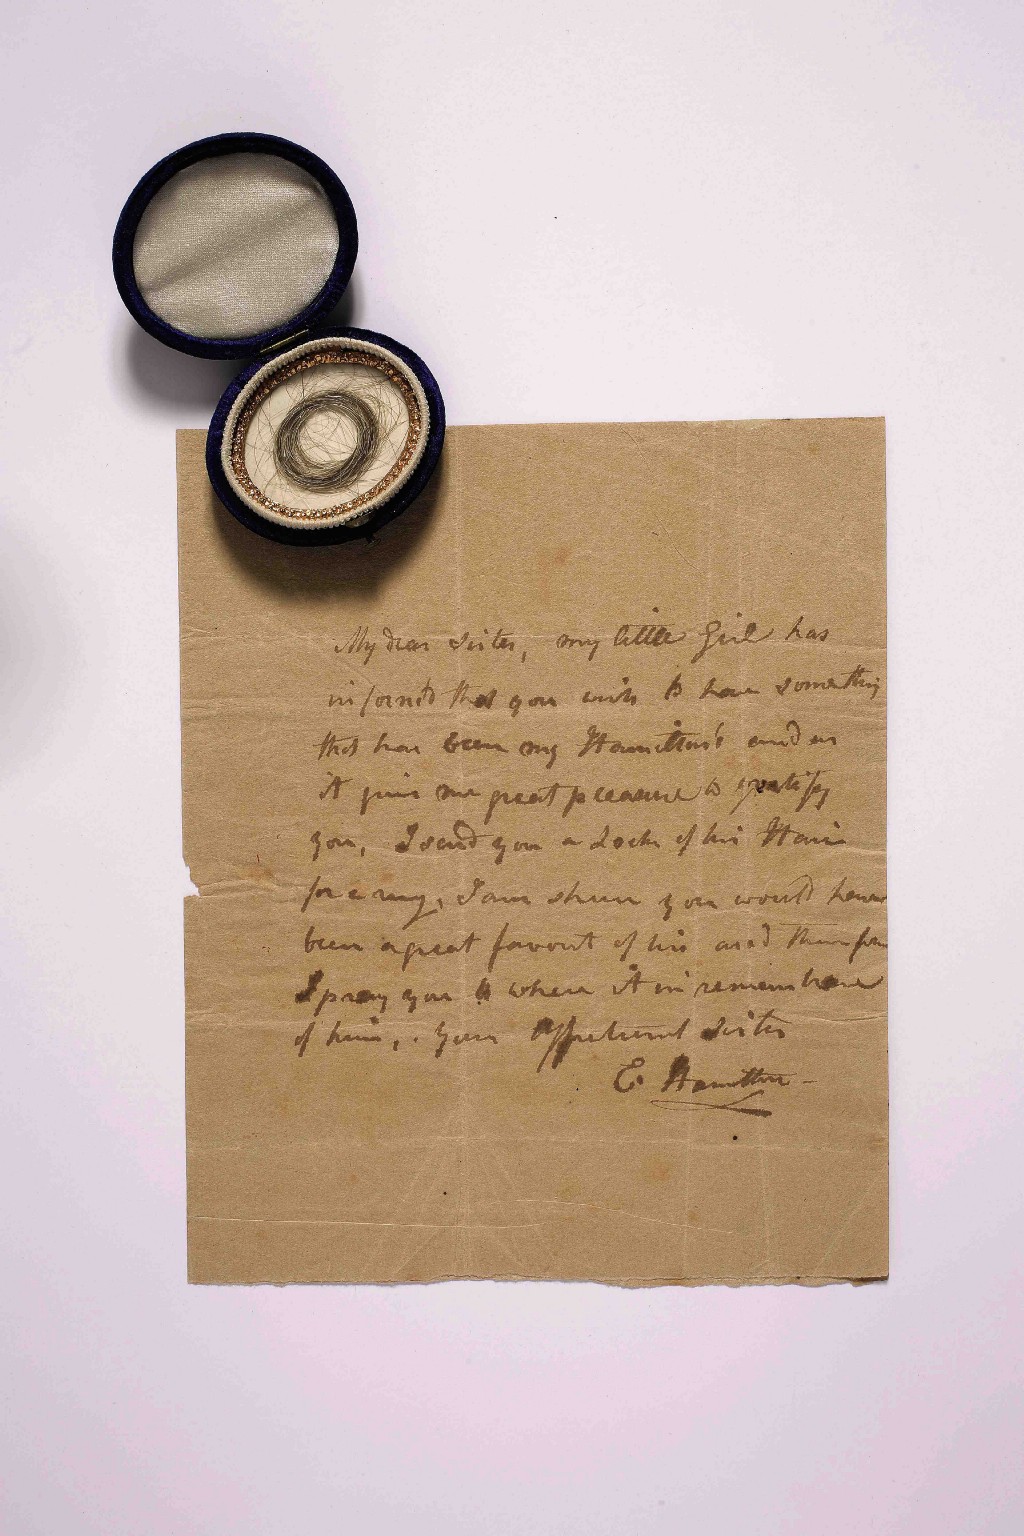 My dear Sister, my little Girl has
informd that you wish to have something
that has been my Hamilton's and as
it gives me great pleasure to gratify
you, I send you a Lock of his Hair
for a ring, I am shure you would have
been a great favourt of his and therefore
I pray you to where it in remembrance
of him, . your Affectienat Sister
E. Hamilton -